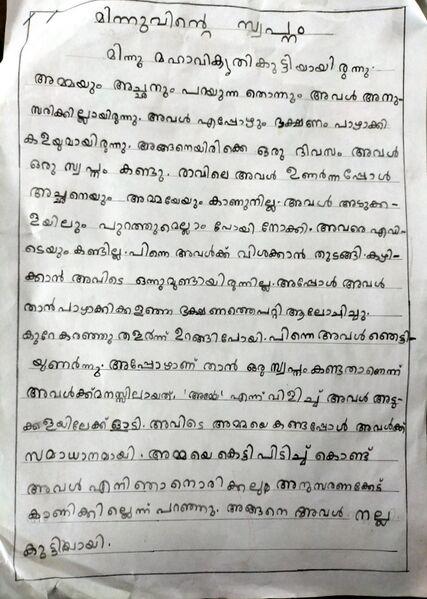 മിന്നുവിന്റെ സ്വപ്നം
മിന്നു മഹാവികൃതികുട്ടിയായിരുന്നു.
അമ്മയും അച്ഛനും പറയുന്ന തൊന്നും അവൾ അനു-
സരിക്കില്ലായിരുന്നു. അവൾ എപ്പോഴും ഭക്ഷണം പാഴാക്കി
കളയുമായിരുന്നു. അങ്ങനെയിരിക്കെ ഒരു ദിവസം അവൾ
ഒരു സ്വപ്നം കണ്ടു. രാവിലെ അവൾ ഉണർന്നപ്പോൾ
അച്ഛനെയും അമ്മയേയും കാണുന്നില്ല. അവൾ അടുക്ക-
ളയിലും പുറത്തുമെല്ലാം പോയി നോക്കി. അവരെ എവി-
ടെയും കണ്ടില്ല. പിന്നെ അവൾക്ക് വിശക്കാൻ തുടങ്ങി. കഴി-
ക്കാൻ അവിടെ ഒന്നുമുണ്ടായിരുന്നില്ല. അപ്പോൾ അവൾ
താൻ പാഴാക്കിക്കളഞ്ഞ ഭക്ഷണത്തെപറ്റി ആലോചിച്ചു.
കുറേ കരഞ്ഞു തളർന്ന് ഉറങ്ങിപോയി. പിന്നെ അവൾ ഞെട്ടി-
യുണർന്നു. അപ്പോഴാണ് താൻ ഒരു സ്വപ്നം കണ്ടതാണെന്ന്
അവൾക്ക്മനസ്സിലായത്. 'അമ്മേ' എന്ന് വിളിച്ച് അവൾ അടു-
ക്കളയിലേക്ക് ഓടി. അവിടെ അമ്മയെ കണ്ടപ്പോൾ അവൾക്ക്
സമാധാനമായി. അമ്മയെ കെട്ടിപിടിച്ച് കൊണ്ട്
അവൾ എനി ഞാനൊരിക്കലും അനുസരണക്കേട്
കാണിക്കില്ലെന്ന് പറഞ്ഞു. അങ്ങനെ അവൾ നല്ല
കുട്ടിയായി.